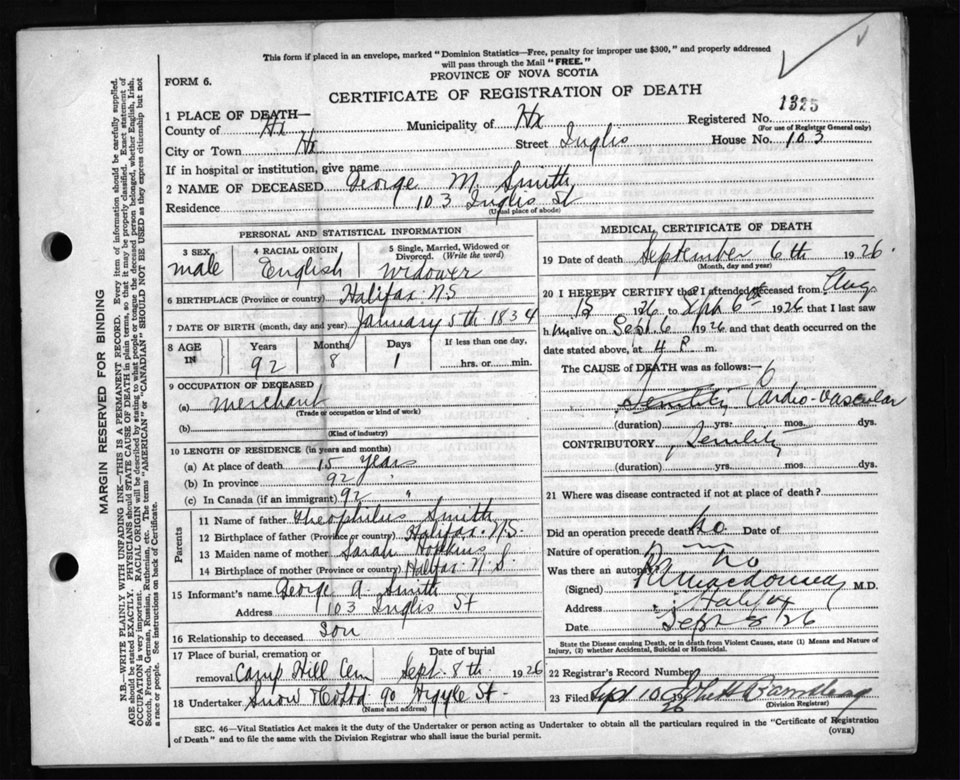 This form if placed in an envelope, marked "Dominion Statistics—Free, penalty for improper use $300," and properly addressed
will pass through the Mail "FREE."
FORM 6.
PROVINCE OF NOVA SCOTIA
CERTIFICATE OF REGISTRATION OF DEATH
1 PLACE OF DEATH—
County of Hx Municipality of Hx Registered No. 1325
(For use of Registrar General only)
City or Town Hx Street Inglis House No. 103
If in hospital or institution, give name
2 NAME OF DECEASED George M. Smith
Residence 103 Inglis St
(Usual place of abode)
PERSONAL AND STATISTICAL INFORMATION
3 SEX male
4 RACIAL ORIGIN English
5 Single, Married, Widowed or Divorced. (Write the word) Widower
6 BIRTHPLACE (Province or country) Halifax N.S
7 DATE OF BIRTH (month, day and year) January 5th 1834
8 AGE IN Years 92 Months 8 Days 1 If less than one day, hrs. or min.
9 OCCUPATION OF DECEASED
(a) Merchant
(Trade or occupation or kind of work)
(b)
(Kind of industry)
10 LENGTH OF RESIDENCE (in years and months)
(a) At place of death 15 years
(b) In province 92 "
(c) In Canada (if an immigrant) 92 "
Parents
11 Name of father Theophilus Smith
12 Birthplace of father (Province or country) Halifax. N.S.
13 Maiden name of mother Sarah Hopkins
14 Birthplace of mother (Province or country) Halifax N.S.
15 Informant's name George A. Smith
Address 103 Inglis St
16 Relationship to deceased Son
17 Place of burial, cremation or removal Camp Hill Cem
Date of burial Sept. 8th 1926
18 Undertaker Snow & Co Ltd 90 Argyle St.
(Name and address)
MEDICAL CERTIFICATE OF DEATH
19 Date of death September 6th 1926.
(Month, day and year)
20 I HEREBY CERTIFY that I attended deceased from Aug
15 1926 to Sept 6th 1926 that I last saw
him alive on Sept. 6 1926 and that death occurred on the
date stated above, at 4 P. m.
The CAUSE of DEATH was as follows:—
Cardio-Vascular
(duration) yrs. mos. dys.
CONTRIBUTORY Senility
(duration) yrs. mos. dys.
21 Where was disease contracted if not at place of death?
Did an operation precede death? No Date of
Nature of operation
Was there an autopsy? No
(Signed) Macdonald M.D.
Address Halifax
Date Sept 8 26
State the Disease causing Death, or in death from Violent Causes, state (1) Means and Nature of
Injury, (2) whether Accidental, Suicidal or Homicidal.
22 Registrar's Record Number
23 Filed Sept 10 1926
(Division Registrar)
SEC. 46—Vital Statistics Act makes it the duty of the Undertaker or person acting as Undertaker to obtain all the particulars required in the "Certificate of Registration
of Death" and to file the same with the Division Registrar who shall issue the burial permit.
(OVER)
MARGIN RESERVED FOR BINDING
N.B.—WRITE PLAINLY WITH UNFADING INK—THIS IS A PERMANENT RECORD. Every item of information should be carefully supplied.
AGE should be stated EXACTLY. PHYSICIANS should STATE CAUSE OF DEATH in plain terms, so that it may be properly classified. Exact statement of
OCCUPATION is very important. RACIAL ORIGIN will be described by stating to what people or tongue the deceased person belonged, whether English, Irish,
Scotch, French, German, Russian, Ruthenian, etc. The terms "AMERICAN" or "CANADIAN" SHOULD NOT BE USED as they express citizenship but not
a race or people. See instructions on back of Certificate.